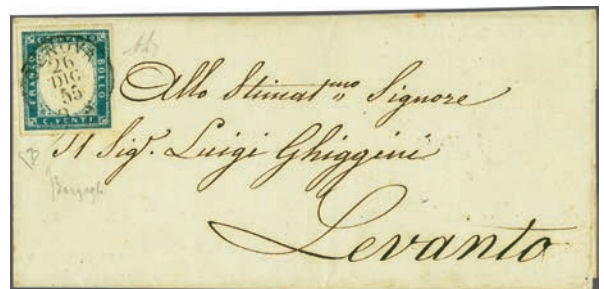 GENOVA
26
DIC
55
FRANCO
BOLLO
C. VENTI
Allo Stimat.mo Signore
Il Sig.r Luigi Ghiggini
Levanto